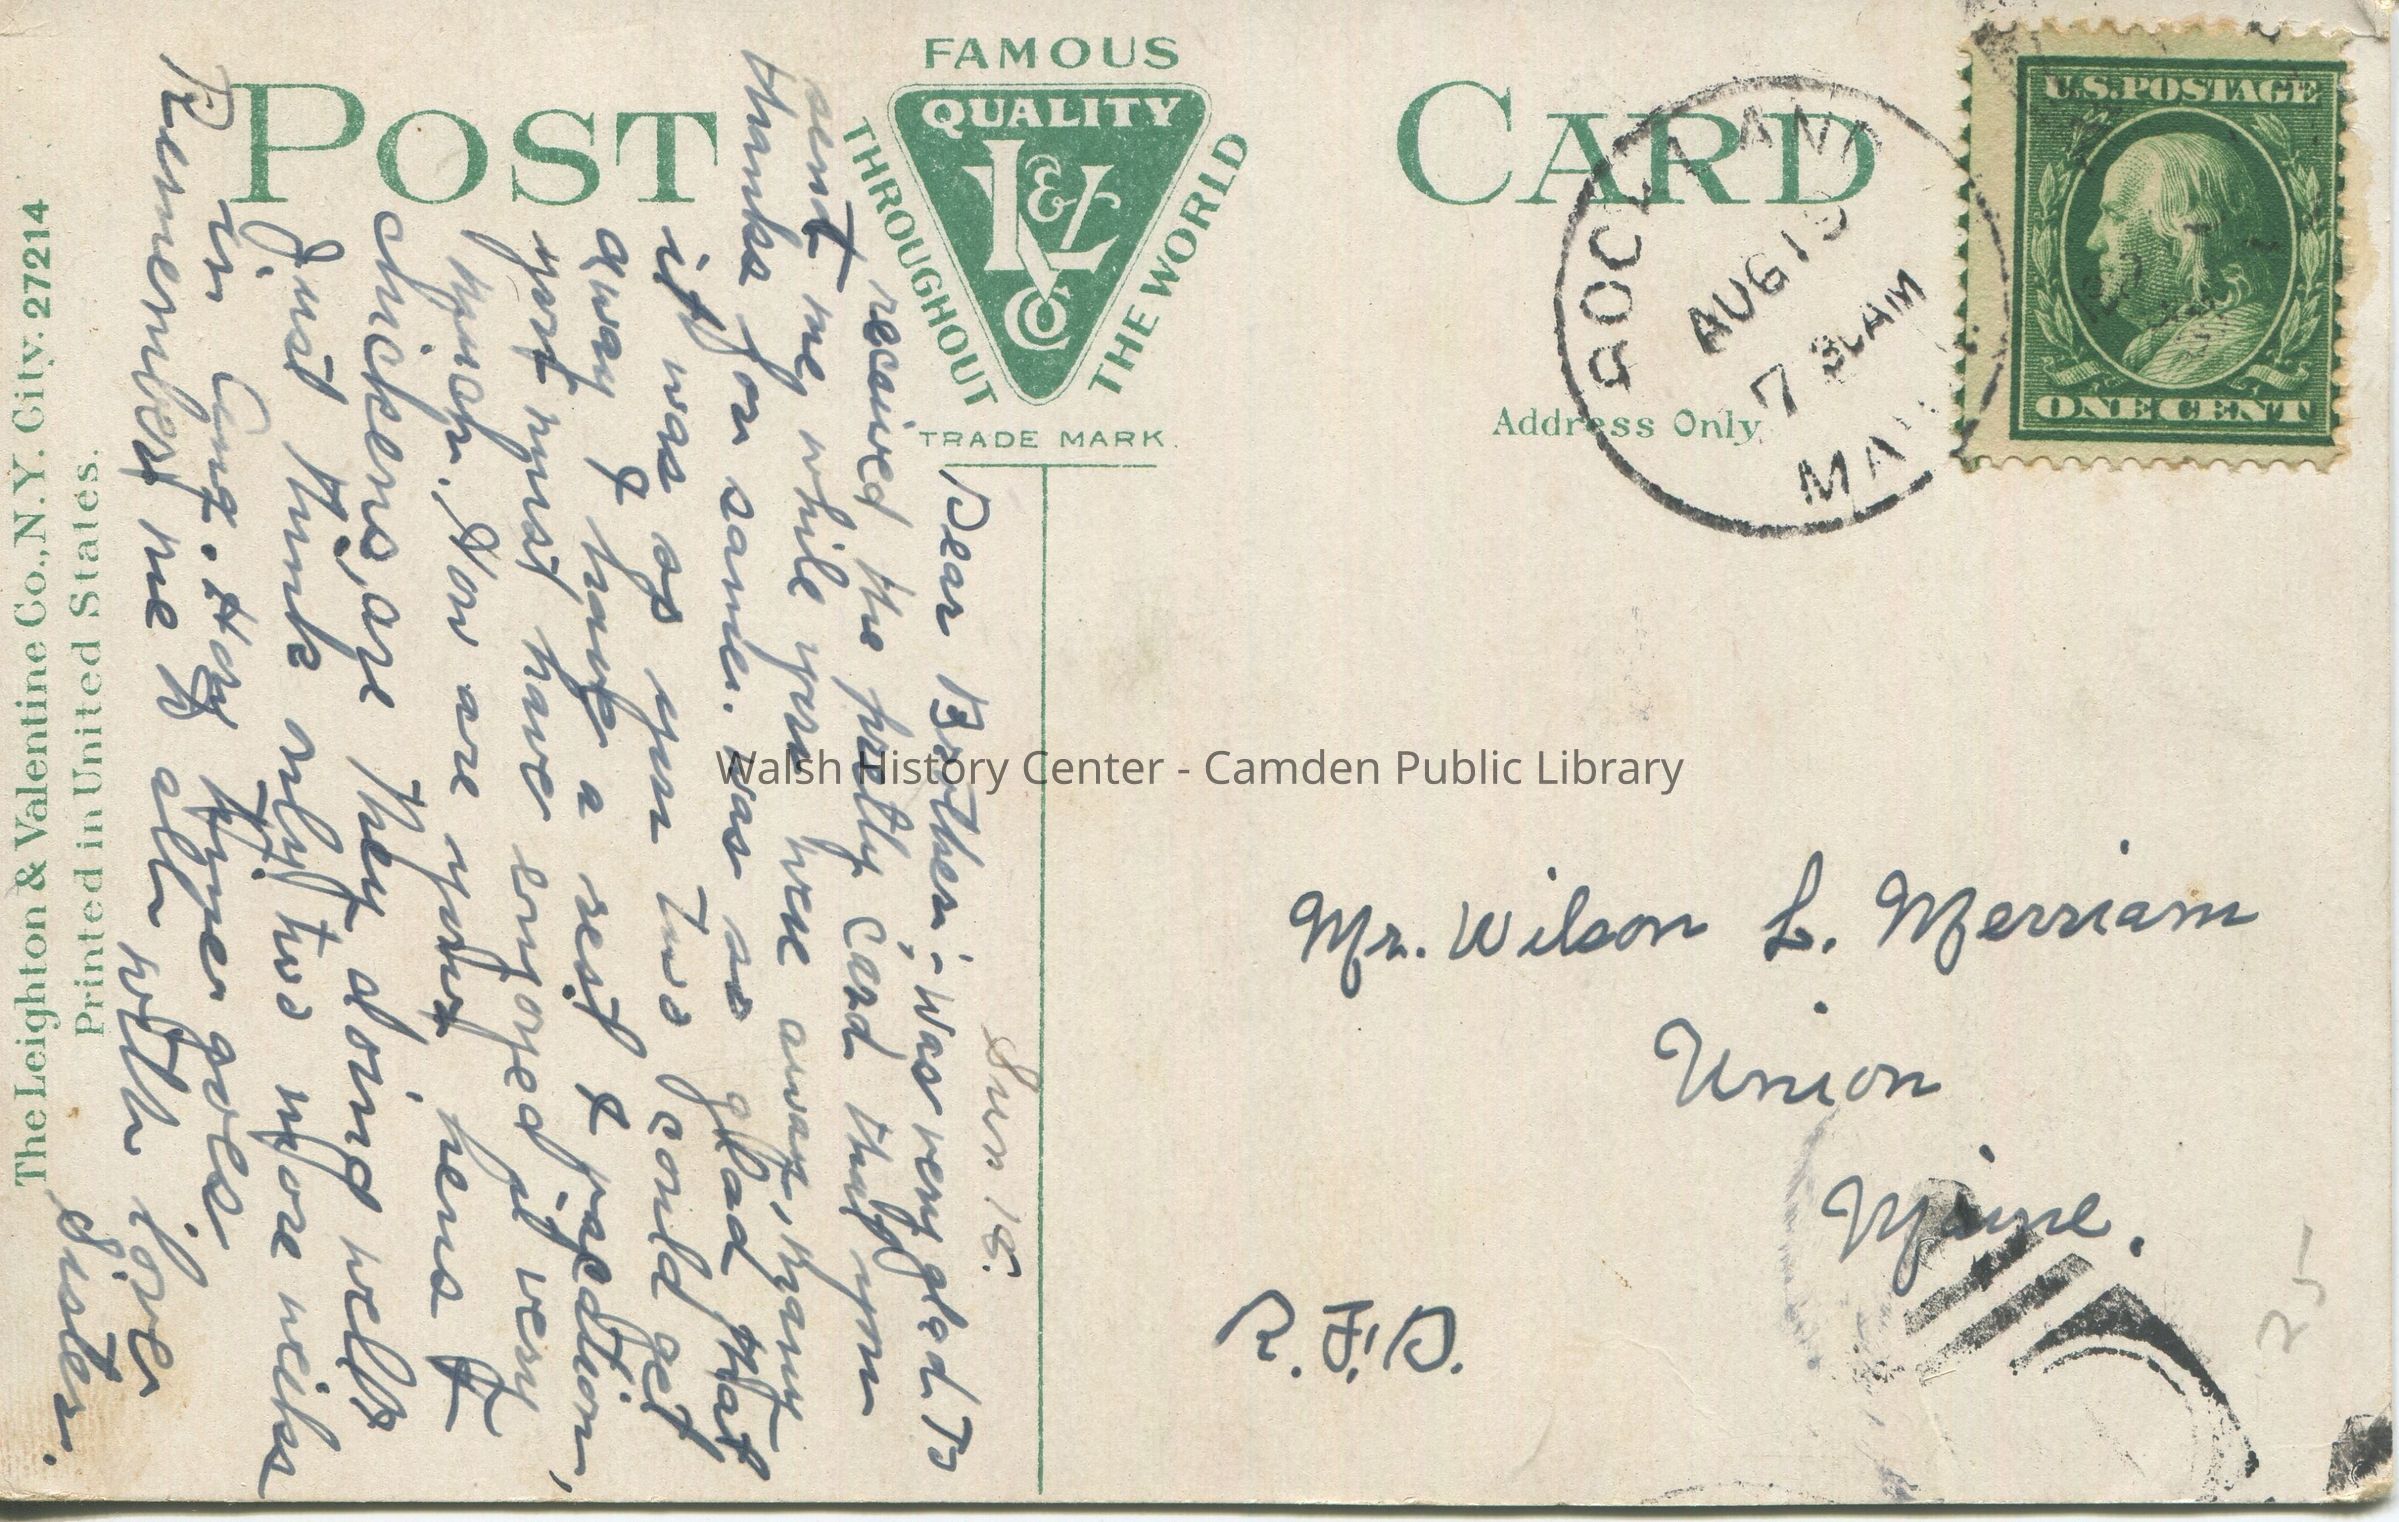 POST CARD
FAMOUS
QUALITY
L & V
Co.
THROUGHOUT
THE WORLD
TRADE MARK.
Address Only
ROCKLAND
AUG 15
7 AM
U.S. POSTAGE
ONE CENT
Mr. Wilson L. Merriam
Union
Maine.
R.F.D.
25
Sun 15.
Dear Brother:- Was very glad to
received the pretty card that you
sent me while you were away, many
thanks for same. Was so glad that
it was so you two could get
away & have a rest & vacation,
you must have enjoyed it very
much. How are your hens &
chickens, are they doing well
Just think only two more weeks
in Aug. How time goes.
Remember me to all with love
Sister.
The Leighton & Valentine Co., N.Y. City. 27214
Printed in United States.
Walsh History Center - Camden Public Library